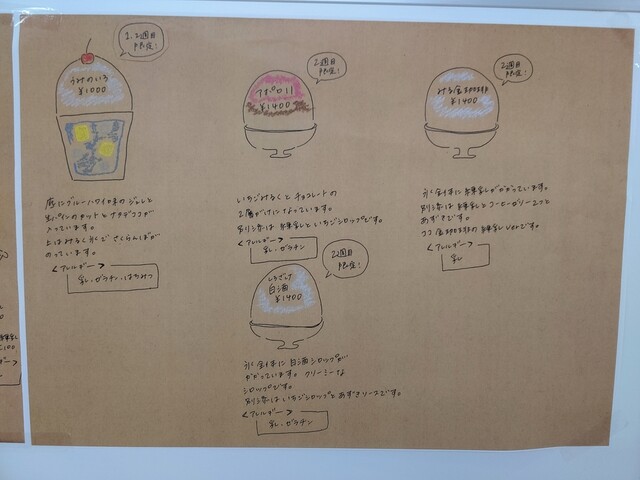 1、2週目
限定!
うみのいろ
¥1000
底にブルーハワイ味のジュレと
生パインのカットとナタデココが
入っています。
上はみるく氷で さくらんぼが
のっています。
<アレルギー>
乳・ゼラチン・はちみつ
2週目
限定!
アポロ11
¥1400
いちごみるくと チョコレートの
2層がけになっています。
別添は 練乳と いちごシロップです。
<アレルギー>
乳・ゼラチン
2週目
限定!
みる金
¥1400
氷全体に練乳がかかっています。
別添は 練乳とコーヒーゼリー
あずきです。
練乳verです。
<アレルギー>
乳
2週目
限定!
しろざけ
白酒
¥1400
氷全体に 白酒シロップが
かかっています。クリーミーな
シロップです。
別添はいちごシロップと あずきソースです。
<アレルギー>
乳・ゼラチン